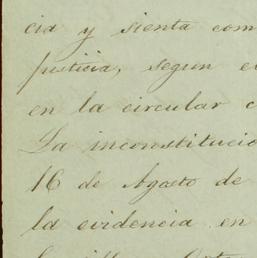 cia y sienta com
justicia, segun e
en la circular c
La inconstitucio
16 de Agosto de
la evidencia en